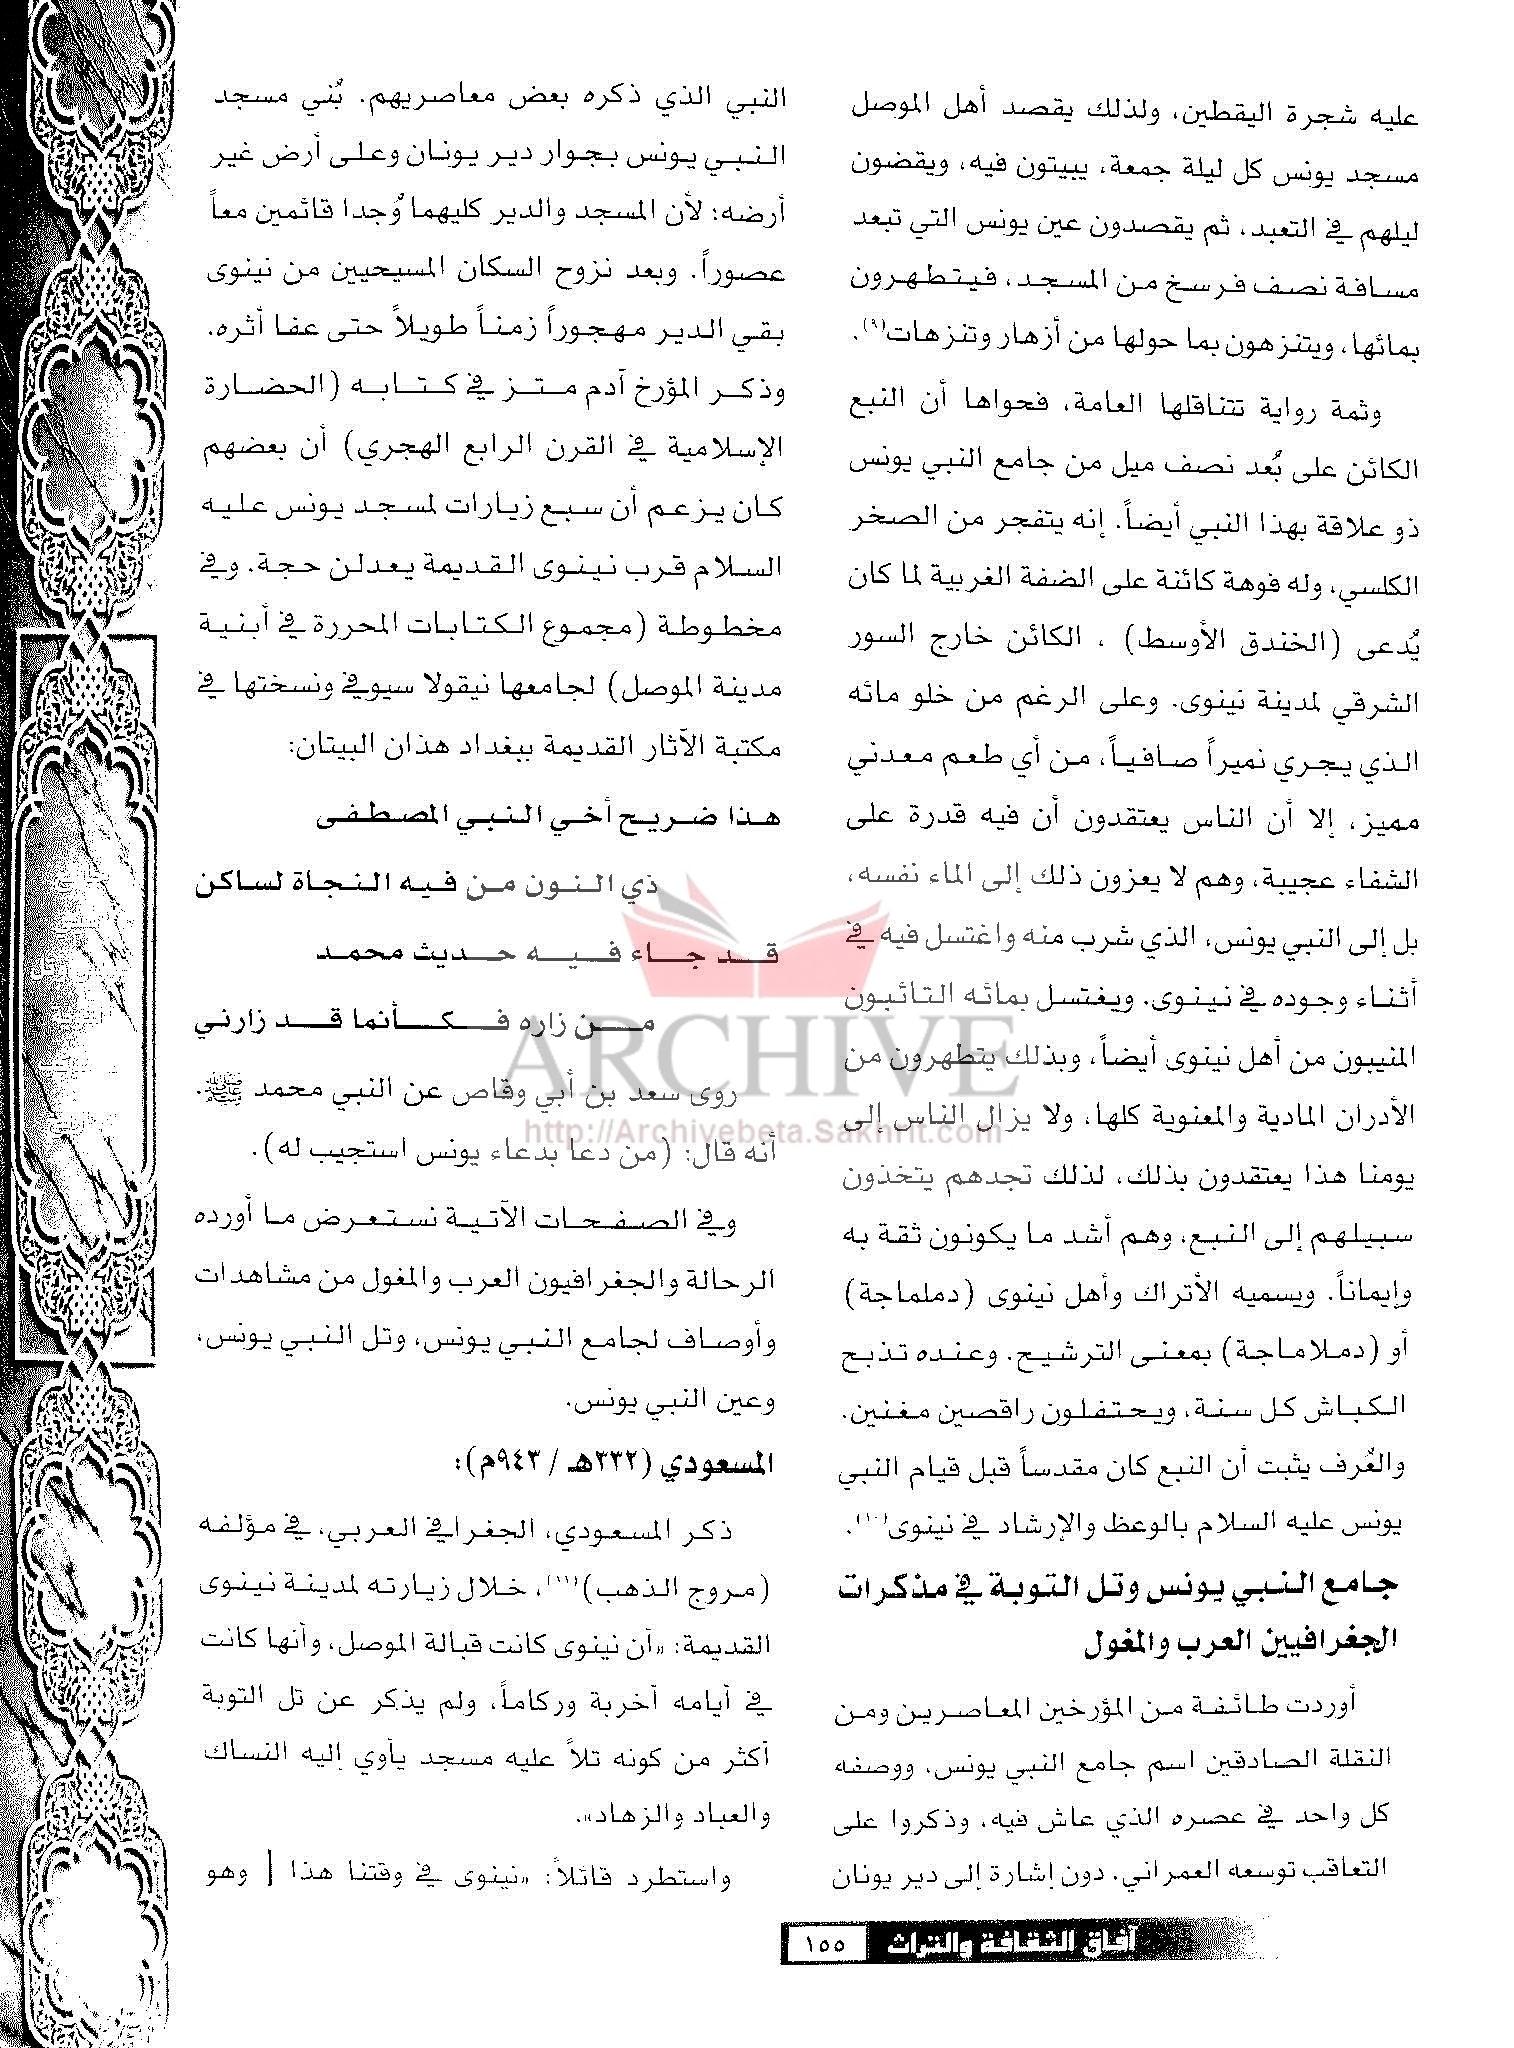 عليه شجرة اليقطين، ولذلك يقصد أهل الموصل
مسجد يونس كل ليلة جمعة، يبيتون فيه، ويقضون
ليلهم في التعبد، ثم يقصدون عين يونس التي تبعد
مسافة نصف فرسخ من المسجد، فيتطهرون
بمائها، ويتنزهون بما حولها من أزهار وتنزهات(٩).
وثمة رواية تتناقلها العامة، فحواها أن النبع
الكائن على بُعد نصف ميل من جامع النبي يونس
ذو علاقة بهذا النبي أيضاً. إنه يتفجر من الصخر
الكلسي، وله فوهة كائنة على الضفة الغربية لما كان
يُدعى (الخندق الأوسط) ، الكائن خارج السور
الشرقي لمدينة نينوى. وعلى الرغم من خلو مائه
الذي يجري نميراً صافياً، من أي طعم معدني
مميز، إلا أن الناس يعتقدون أن فيه قدرة على
الشفاء عجيبة، وهم لا يعزون ذلك إلى الماء نفسه،
بل إلى النبي يونس، الذي شرب منه واغتسل فيه في
أثناء وجوده في نينوى. ويغتسل بمائه التائبون
المنيبون من أهل نينوى أيضاً، وبذلك يتطهرون من
الأدران المادية والمعنوية كلها، ولا يزال الناس إلى
يومنا هذا يعتقدون بذلك، لذلك تجدهم يتخذون
سبيلهم إلى النبع، وهم أشد ما يكونون ثقة به
وإيماناً. ويسميه الأتراك وأهل نينوى (دملماجة)
أو (دملاماجة) بمعنى الترشيح. وعنده تذبح
الكباش كل سنة، ويحتفلون راقصين مغنين.
والعُرف يثبت أن النبع كان مقدساً قبل قيام النبي
يونس عليه السلام بالوعظ والإرشاد في نينوى(١٠).
جامع النبي يونس وتل التوبة في مذكرات
الجغرافيين العرب والمغول
أوردت طائفة من المؤرخين المعاصرين ومن
النقلة الصادقين اسم جامع النبي يونس، ووصفه
كل واحد في عصره الذي عاش فيه، وذكروا على
التعاقب توسعه العمراني. دون إشارة إلى دير يونان
النبي الذي ذكره بعض معاصريهم. بُني مسجد
النبي يونس بجوار دير يونان وعلى أرض غير
أرضه؛ لأن المسجد والدير كليهما وُجدا قائمين معاً
عصوراً. وبعد نزوح السكان المسيحيين من نينوى
بقي الدير مهجوراً زمناً طويلاً حتى عفا أثره.
وذكر المؤرخ آدم متز في كتابه (الحضارة
الإسلامية في القرن الرابع الهجري) أن بعضهم
كان يزعم أن سبع زيارات لمسجد يونس عليه
السلام قرب نينوى القديمة يعدلن حجة. وفي
مخطوطة (مجموع الكتابات المحررة في أبنية
مدينة الموصل) لجامعها نيقولا سيوفي ونسختها في
مكتبة الآثار القديمة ببغداد هذان البيتان:
هذا ضريح أخي النبي المصطفى
ذي النون من فيه النجاة لساكن
قد جاء فيه حديث محمد
من زاره فكأنما قد زارني
روى سعد بن أبي وقاص عن النبي محمد ﷺ.
أنه قال: (من دعا بدعاء يونس استجيب له).
وفي الصفحات الآتية نستعرض ما أورده
الرحالة والجغرافيون العرب والمغول من مشاهدات
وأوصاف لجامع النبي يونس، وتل النبي يونس،
وعين النبي يونس.
المسعودي (٣٣٢هـ / ٩٤٣م):
ذكر المسعودي، الجغرافي العربي، في مؤلفه
(مروج الذهب)(١١)، خلال زيارته لمدينة نينوى
القديمة: «أن نينوى كانت قبالة الموصل، وأنها كانت
في أيامه أخربة وركاماً، ولم يذكر عن تل التوبة
أكثر من كونه تلاً عليه مسجد يأوي إليه النساك
والعباد والزهاد».
واستطرد قائلاً: «نينوى في وقتنا هذا [ وهو
آفاق الثقافة والتراث ١٥٥
ARCHIVE
http://Archivebeta.Sakhrit.com